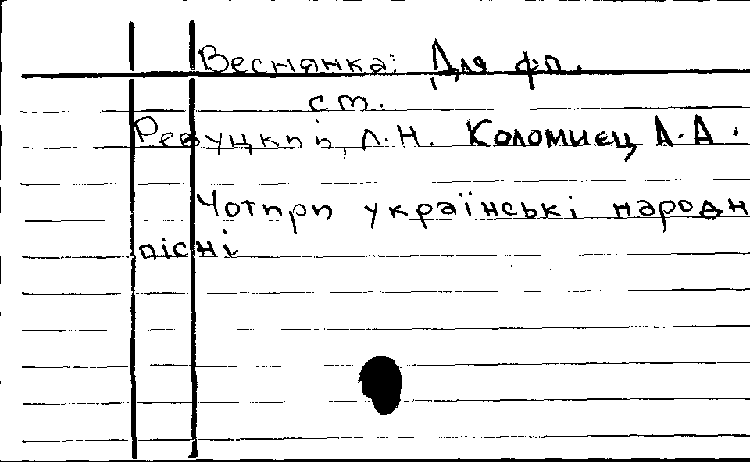 Веснянка: Для фп.
ст.
Ревуцкий, Л.Н. Коломиец А.А.
Чотири українські народн
пісні